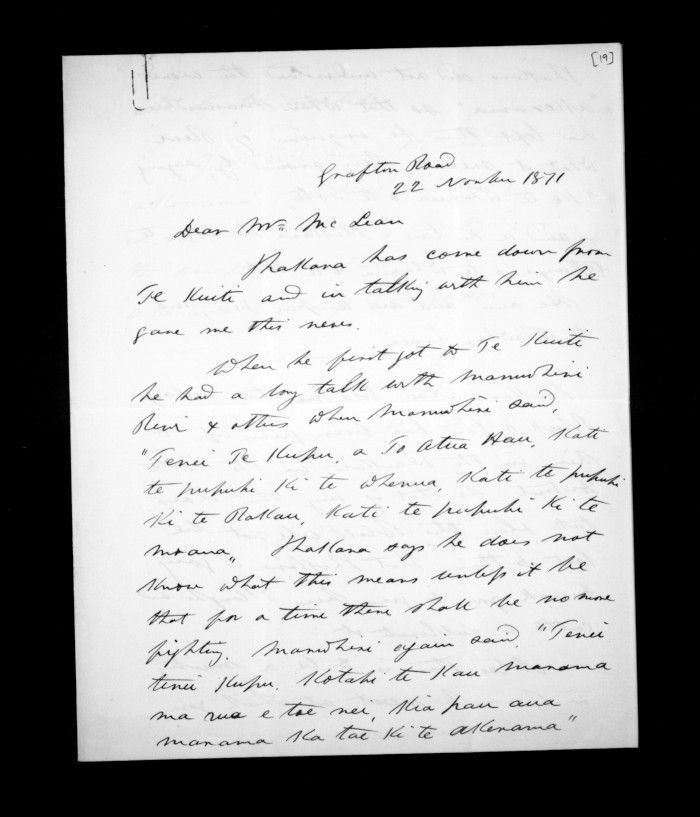 [19]
Grafton Road
22 Novber 1871
Dear Mr. McLean
Ihakara has come down from
Te Kuiti and in talking with him he
gave me this news.
When he first got to Te Kuiti
he had a long talk with Manuwhiri
Rewi & others when Manuwhiri said,
"Tenei Te Kupu, a To Atua Hau, Kati
te pupuhi Ki te whenua, Kati te pupuhi
Ki te Rakau, Kati te pupuhi Ki te
moana" Ihakara says he does not
Know what this means unless it be
that for a time there shall be no more
fighting. Manuwhiri again said "Tenei
tenei Kupu. Kotahi te Kau marama
ma rua e toe nei, Kia pau aua
marama Ka tae Ki te akerama"